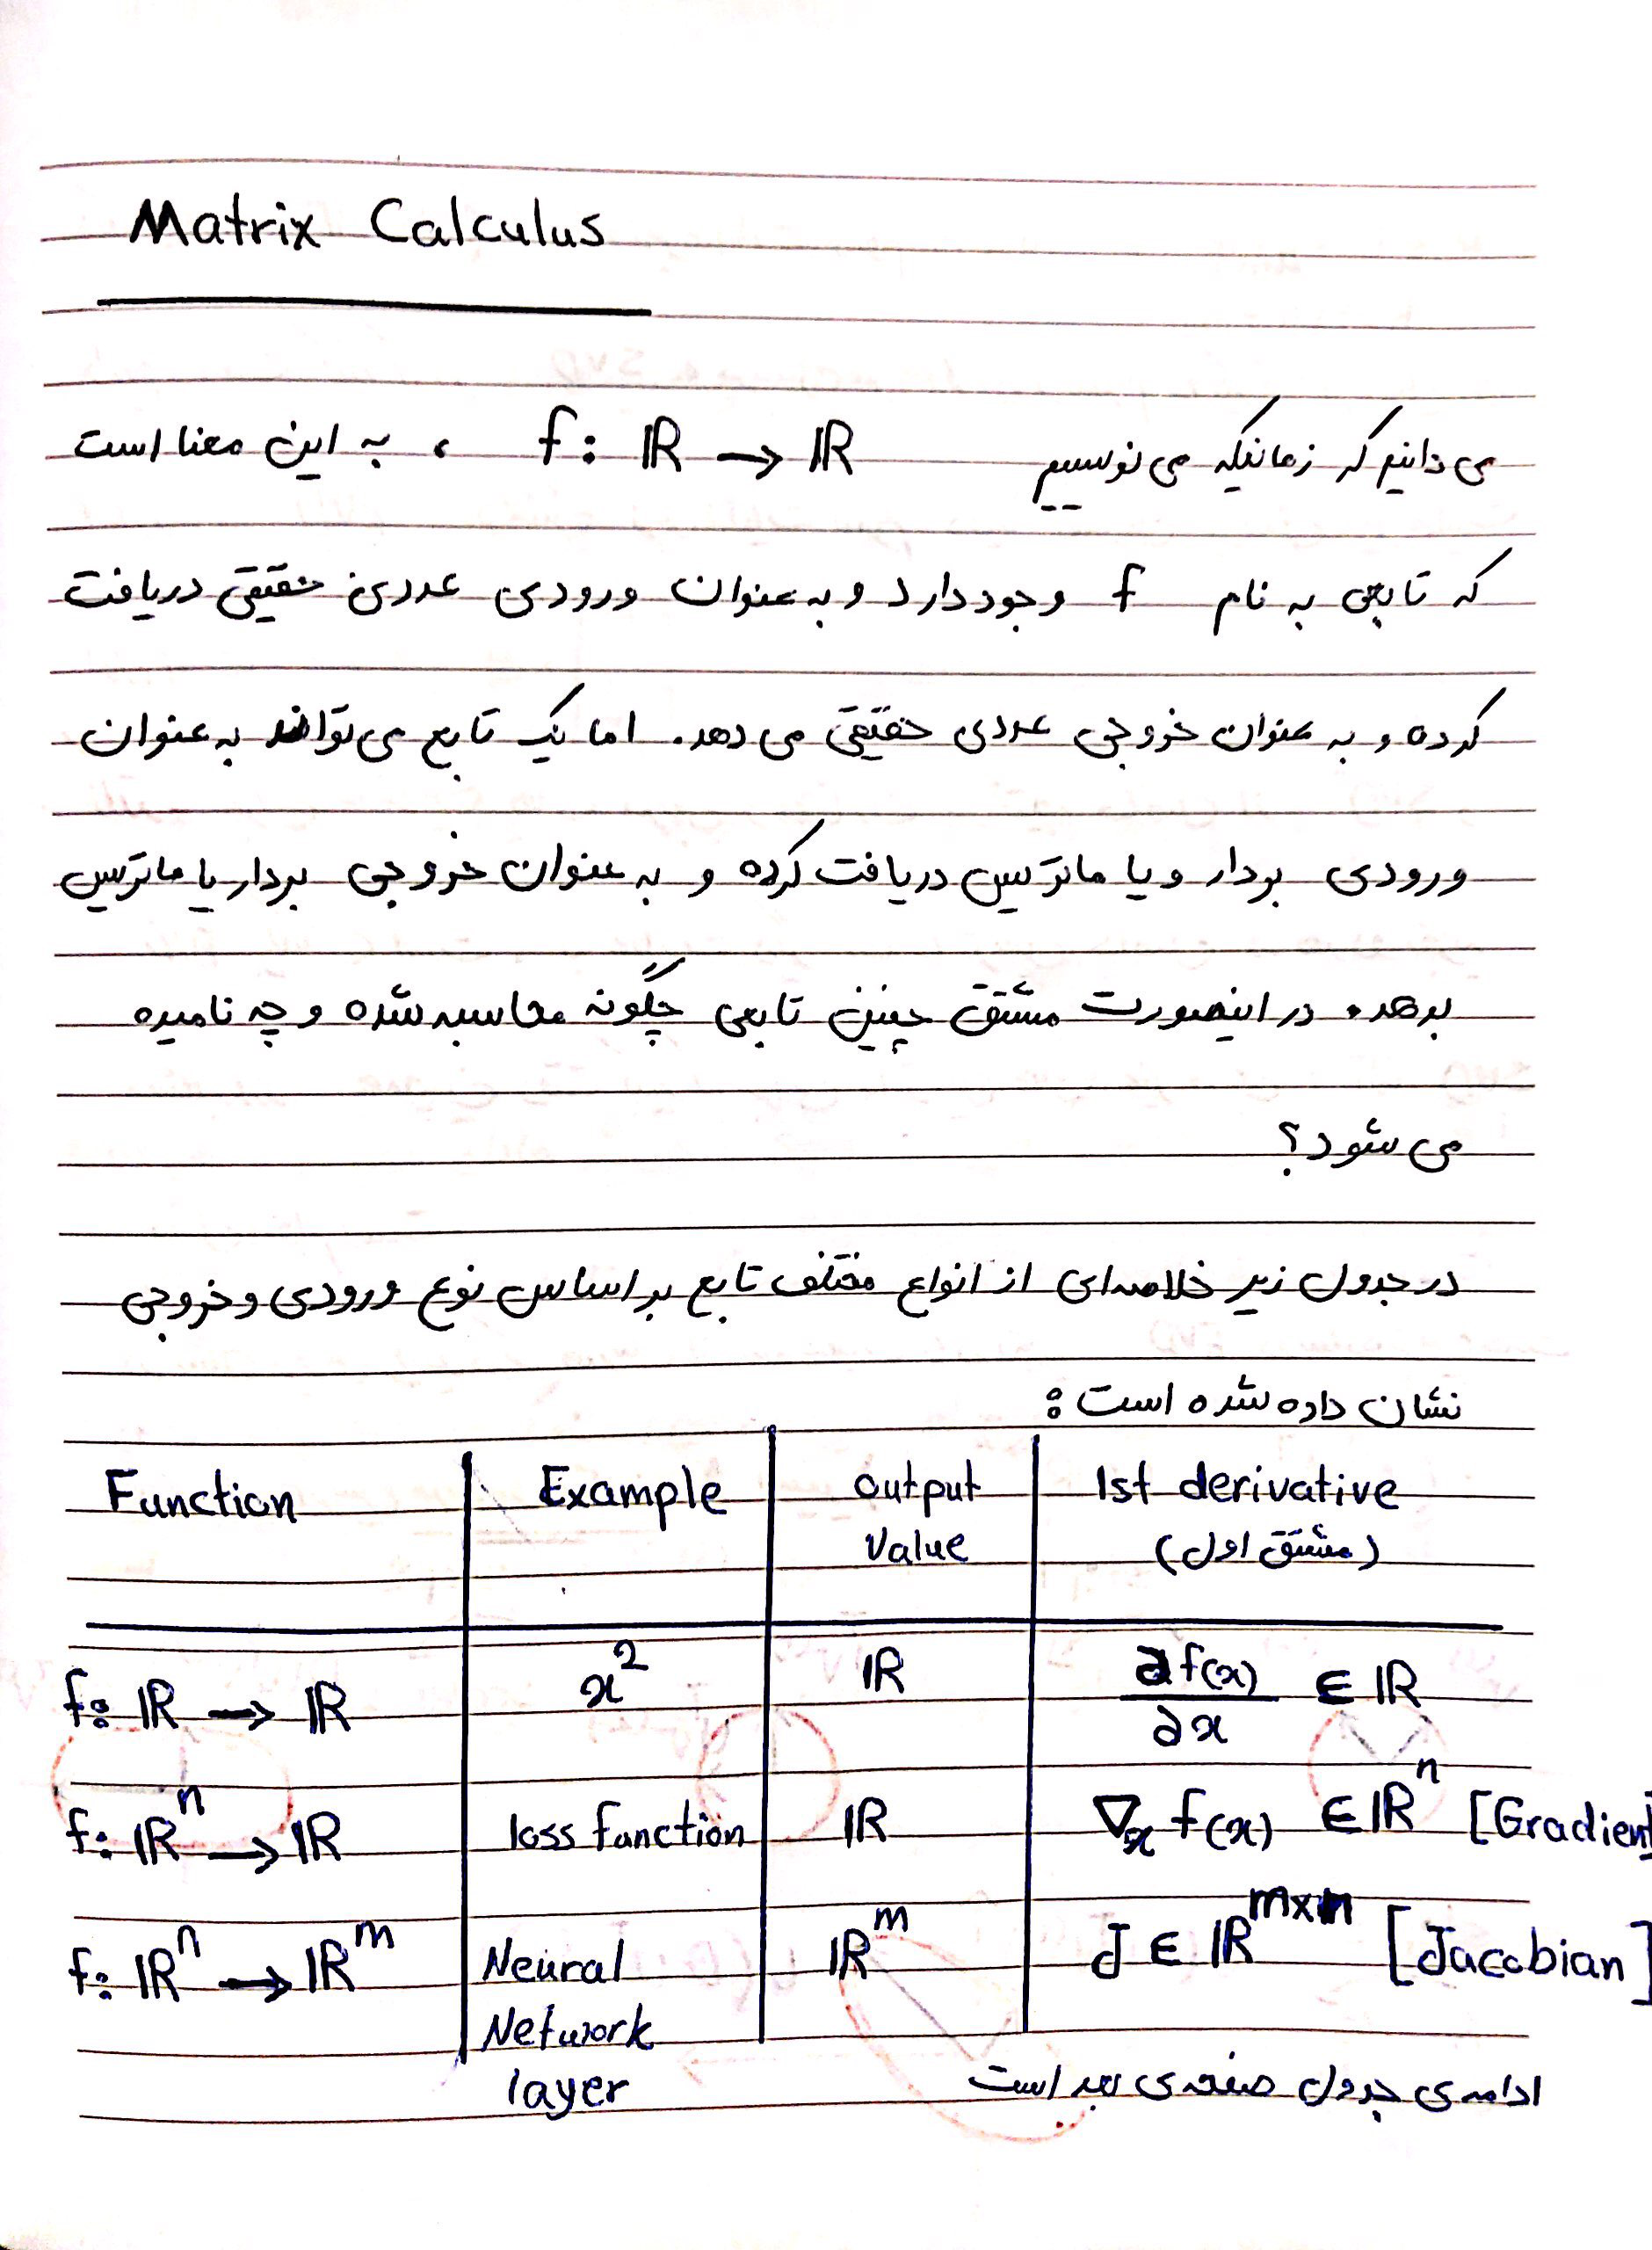 Matrix Calculus
می دانیم که زمانیکه می نویسیم f: ℝ → ℝ ، به این معنا است
که تابعی به نام f وجود دارد و به عنوان ورودی عددی حقیقی دریافت
کرده و به عنوان خروجی عددی حقیقی می دهد. اما یک تابع می تواند به عنوان
ورودی بردار و یا ماتریس دریافت کرده و به عنوان خروجی بردار یا ماتریس
بدهد. در اینصورت مشتق چنین تابعی چگونه محاسبه شده و چه نامیده
می شود؟
در جدول زیر خلاصه ای از انواع مختلف تابع بر اساس نوع ورودی و خروجی
نشان داده شده است:
Function | Example | output Value | 1st derivative (مشتق اول)
f: ℝ → ℝ | x² | ℝ | ∂f(x)/∂x ∈ ℝ
f: ℝⁿ → ℝ | loss function | ℝ | ∇ₓ f(x) ∈ ℝⁿ [Gradient]
f: ℝⁿ → ℝᵐ | Neural Network layer | ℝᵐ | J ∈ ℝᵐˣⁿ [Jacobian]
ادامه ی جدول صفحه ی بعد است